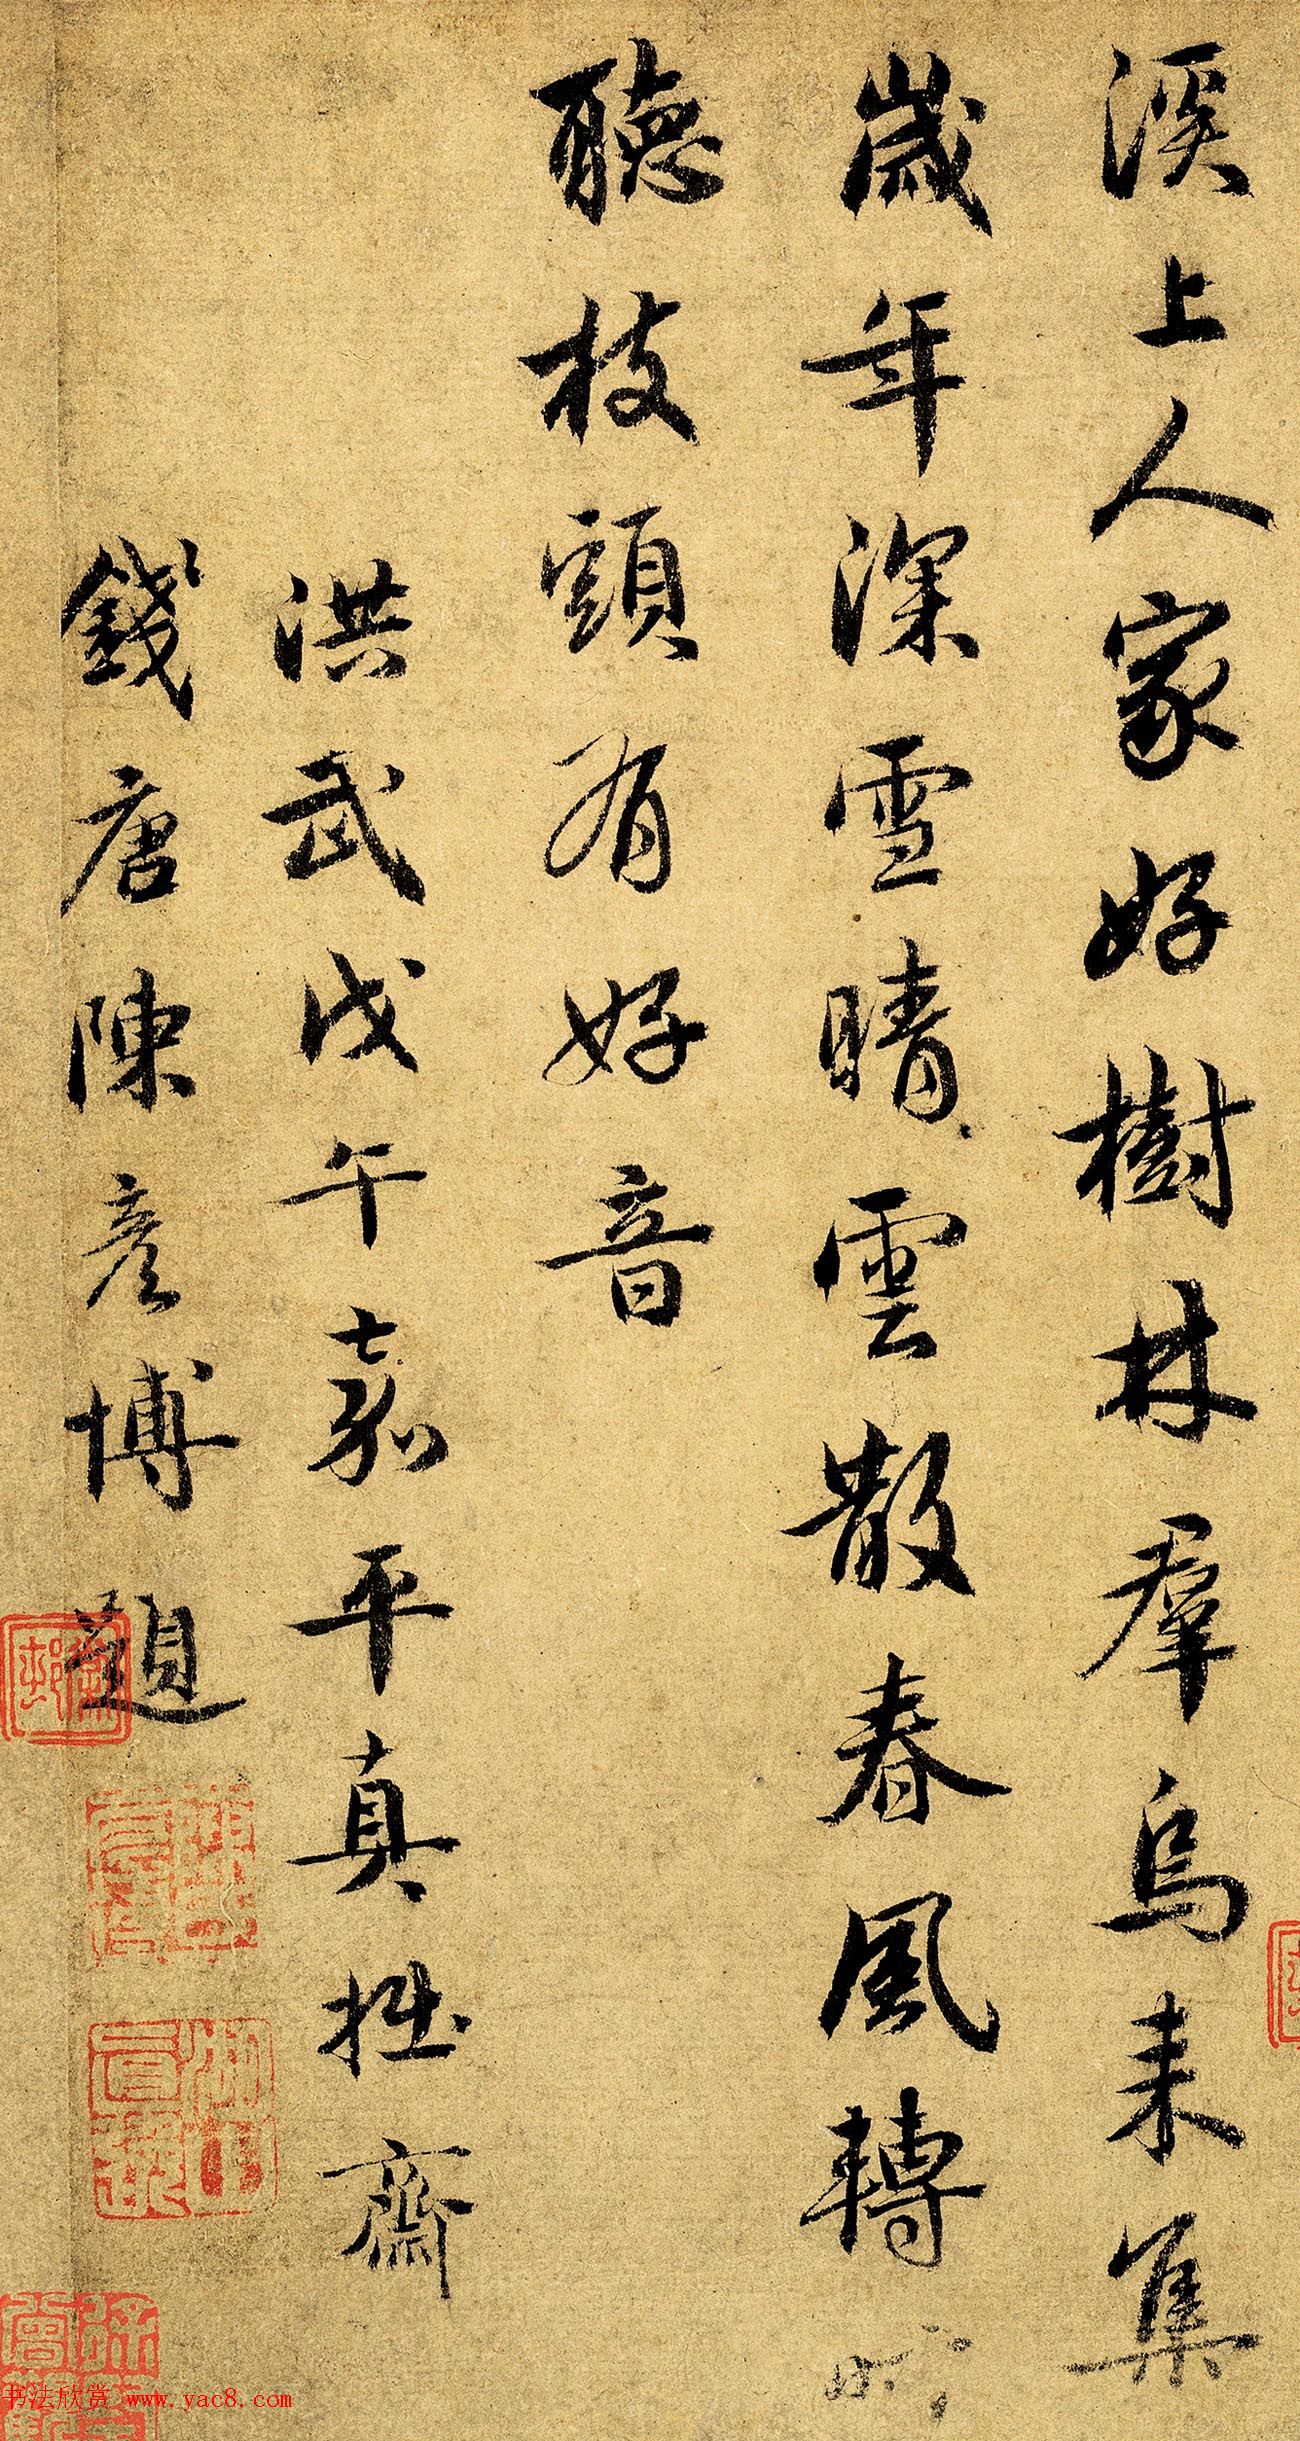 溪上人家好樹林羣烏来集
歲年深雪晴雲散春風轉
聽枝頭有好音
洪武戊午嘉平真拙齋
錢唐陳彥博題
书法欣赏 www.yac8.com